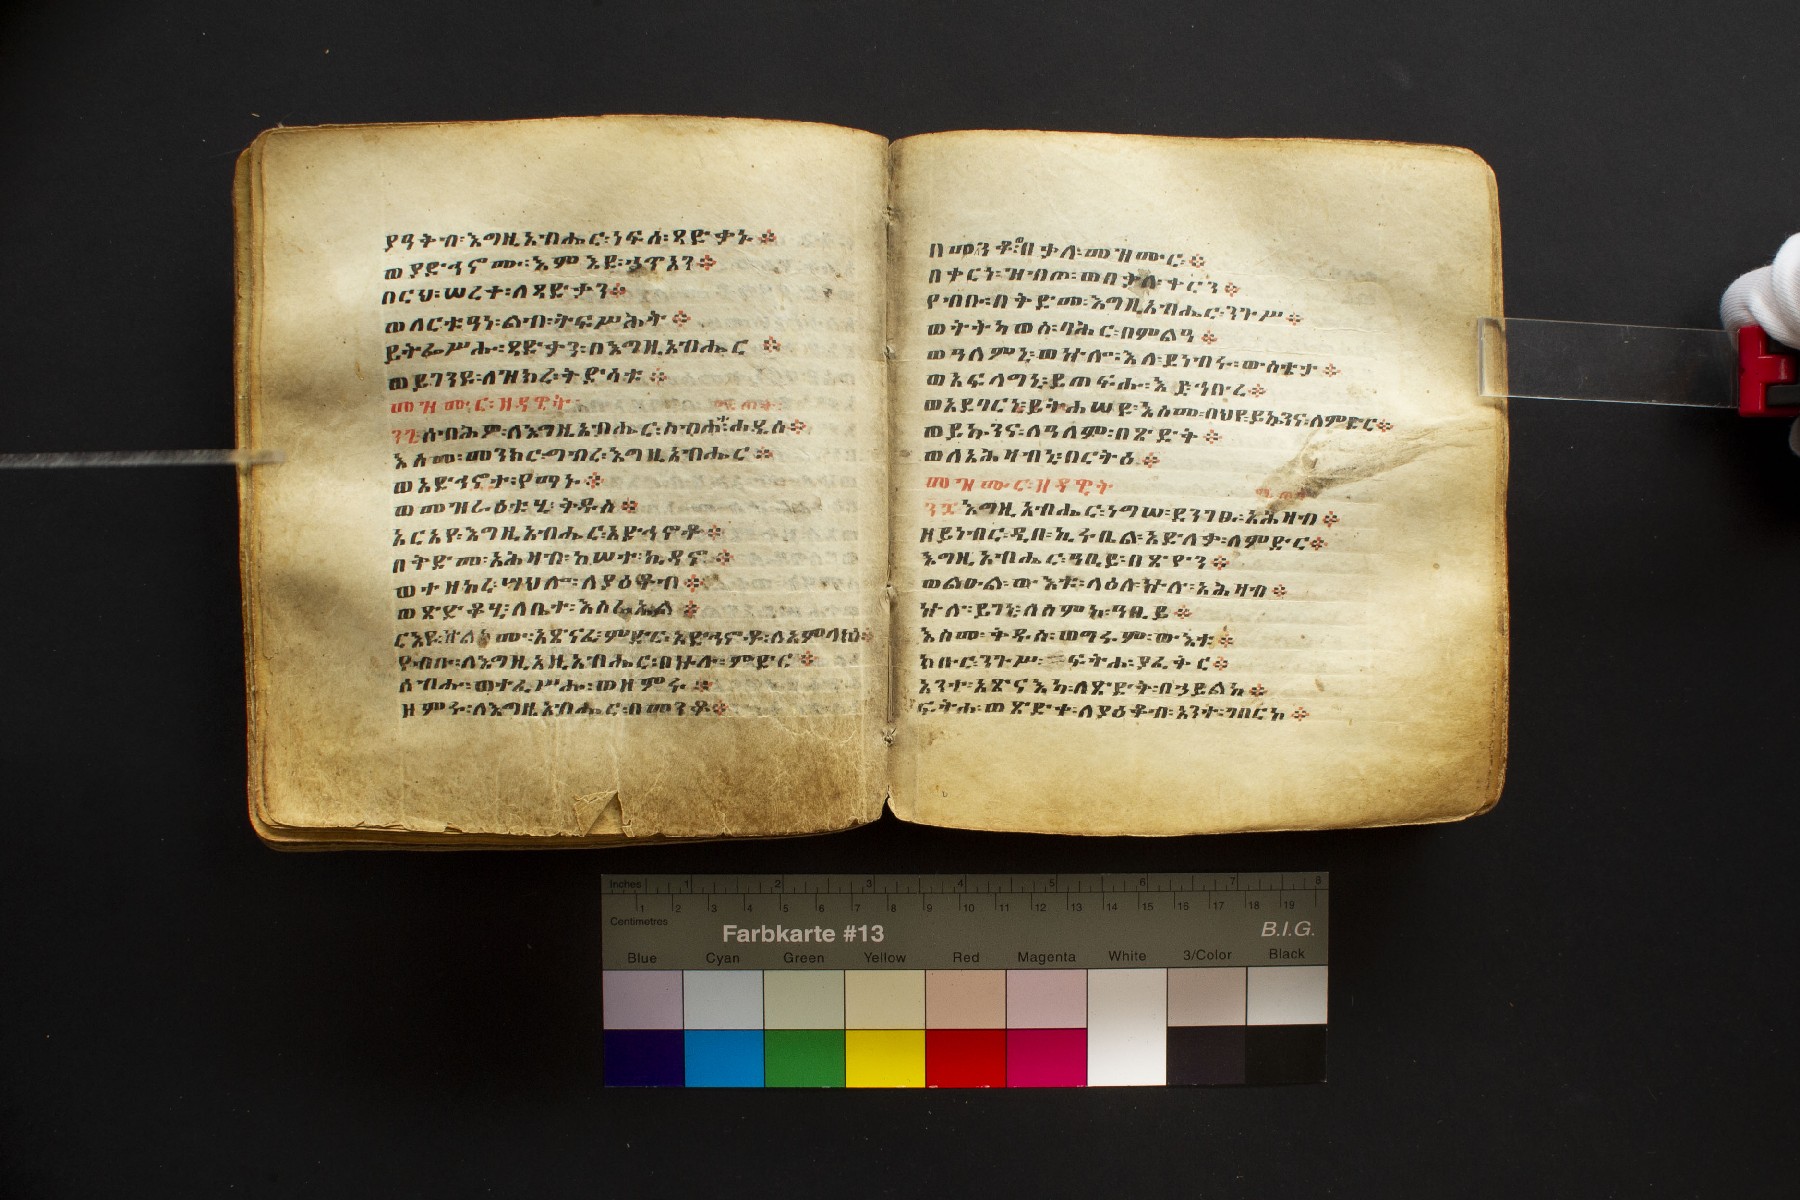 ያዓቅብ፡እግዚአብሔር፡ነፍሰ፡ጻድቃኑ፨
ወያድኅኖሙ፡እምእደ፡ኃጥአን፨
በርህ፡ሠረቀ፡ለጻድቃን፨
ወለርቱዓነ፡ልብ፡ትፍሥሕት፨
ይትፌሥሑ፡ጻድቃን፡በእግዚአብሔር፨
ወይገንዩ፡ለዝክረ፡ቅድሳቱ፨
መዝሙር፡ዘዳዊት
ሰብሕዎ፡ለእግዚአብሔር፡ስብሐተ፡ሐዲሰ፨
እስመ፡መንክረ፡ገብረ፡እግዚአብሔር፨
ወአድኅኖተ፡የማኑ፨
ወመዝራዕቱ፡ቅዱስ፨
አርአየ፡እግዚአብሔር፡አድኅኖቶ፨
በቅድመ፡አሕዛብ፡ከሠተ፡ኪዳኖ፨
ወተዘከረ፡ሣህሎ፡ለያዕቆብ፨
ወጽድቆ፡ለቤተ፡እስራኤል፨
ርእዩ፡ኵልሙ፡አጽናፈ፡ምድር፡አድኅኖቶ፡ለአምላክነ፨
የብቡ፡ለእግዚአዚአብሔር፡በኵሉ፡ምድር፨
ሰብሑ፡ወተፈሥሑ፡ወዘምሩ፨
ዘምሩ፡ለእግዚአብሔር፡በመንቆ፨
በመንቆ፡በቃለ፡መዝሙር፨
በቀርነ፡ዝብጦ፡ወበቃለ፡ቀርን፨
የብቡ፡በቅድመ፡እግዚአብሔር፡ንጉሥ፨
ወትትሀወስ፡ባሕር፡በምልዓ፨
ወዓለምኒ፡ወኵሉ፡እለ፡ይነብሩ፡ውስቴታ፨
ወአፍላግኒ፡ይጠፍሑ፡እደ፡ኅቡረ፨
ወአድባርኒ፡ይትሐሠዩ፡እስመ፡በህየ፡ይኴንና፡ለምድር፨
ወይኴንና፡ለዓለም፡በጽድቅ፨
ወለአሕዛብኒ፡በርትዕ፨
መዝሙር፡ዘዳዊት
እግዚአብሔር፡ነግሠ፡ደንገፁ፡አሕዛብ፨
ዘይነብር፡ዲበ፡ኪሩቤል፡አድለቅለቃ፡ለምድር፨
እግዚአብሔር፡ዓቢይ፡በጽዮን፨
ወልዑል፡ውእቱ፡ላዕለ፡ኵሉ፡አሕዛብ፨
ኵሉ፡ይገኒ፡ለስምከ፡ዓቢይ፨
እስመ፡ቅዱስ፡ወግሩም፡ውእቱ፨
ክቡር፡ንጉሥ፡ፍትሐ፡ያፈቅር፨
አንተ፡አጽናእካ፡ለጽድቅ፡በኃይልከ፨
ፍትሐ፡ወጽድቀ፡ለያዕቆብ፡አንተ፡ገበርከ፨
Inches 1 2 3 4 5 6 7 8
Centimetres 1 2 3 4 5 6 7 8 9 10 11 12 13 14 15 16 17 18 19
Farbkarte #13 B.I.G.
Blue Cyan Green Yellow Red Magenta White 3/Color Black